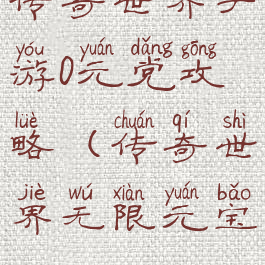 传奇世界手
yóu yuán dǎng gōng
游0元党攻
lüè chuán qí shì
略（传奇世
jiè wú xiàn yuán bǎo
界无限元宝